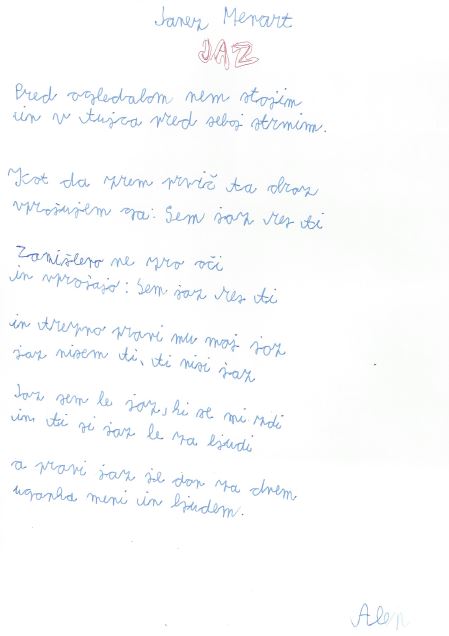 Janez Menart
JAZ
Pred ogledalom nem stojim
in v tujca pred seboj strmim.
Kot da zrem prvič ta obraz
vprašujem ga: Sem jaz res ti
Zamišljeno me zro oči
in vprašajo: Sem jaz res ti
in trezno pravi mu moj jaz
jaz nisem ti, ti nisi jaz
Jaz sem le jaz, ki se mi zdi
in ti si jaz le za ljudi
a pravi jaz je dan za dnem
uganka meni in ljudem.
Alen